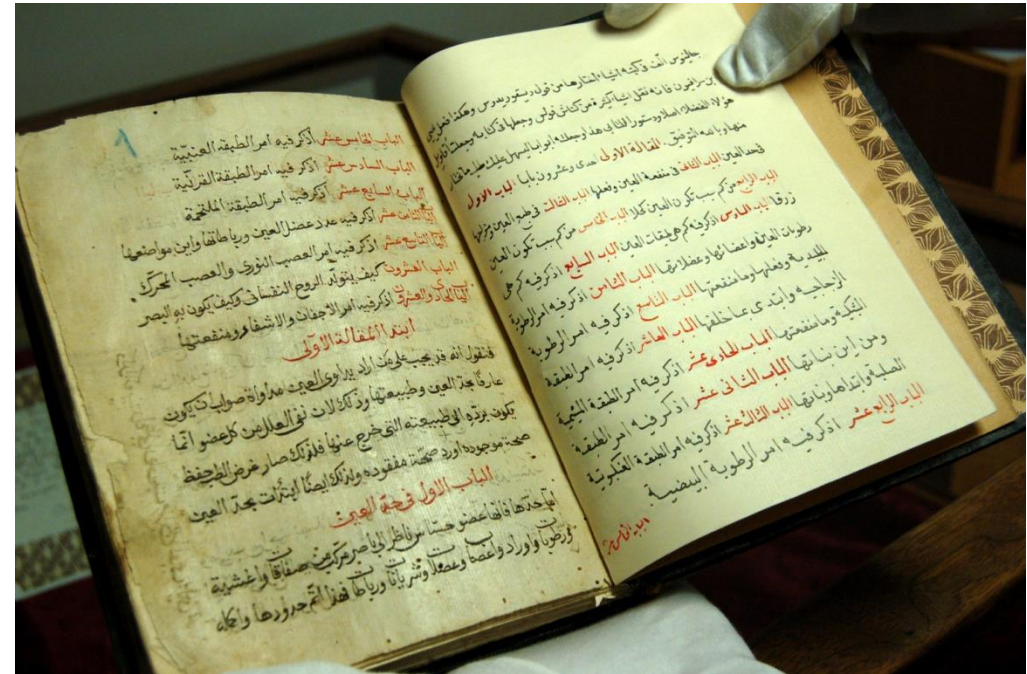 جالينوس الفت في كتبه اشياء اختارها من قول ديسقوريدوس وهكذا فعل يحيى
بن سرافيون فانه نقل اشياء كثيرة من كناش فولس وجعلها في كتابه وجعلت
هولاء الفضلاء اصلا ودستورا لكتابي هذا وجعلته ابوابا ليسهل عليك علم ما تختار
منها وبالله التوفيق. المقالة الاولى احدى وعشرون بابا الباب الاول
في حد العين الباب الثاني في منفعة العين وفعلها الباب الثالث في طبع العين ومزاجها
الباب الرابع من كم سبب تكون العين كحلا الباب الخامس من كم سبب تكون العين
زرقا الباب السادس اذكر فيه كم هي طبقات العين الباب السابع اذكر فيه كم هي
رطوبات العين واعضائها وعضلاتها الباب الثامن اذكر فيه امر الرطوبة
الجليدية وفعلها وما منفعتها الباب التاسع اذكر فيه امر الرطوبة
الزجاجية وابتدى عما خلفها الباب العاشر اذكر فيه امر الطبقة
الشبكية وما منفعتها الباب الحادى عشر اذكر فيه امر الطبقة المشيمية
ومن اين نباتها الباب الثانى عشر اذكر فيه امر الطبقة
الصلبة وابتداها ونباتها الباب الثالث عشر اذكر فيه امر الطبقة العنكبوتية
الباب الرابع عشر اذكر فيه امر الرطوبة البيضية
الباب الخامس عشر
١
الباب الخامس عشر اذكر فيه امر الطبقة العنبية
الباب السادس عشر اذكر فيه امر الطبقة القرنية
الباب السابع عشر اذكر فيه امر الطبقة الملتحمة
الباب الثامن عشر اذكر فيه عدد عضل العين ورباطاتها واين مواضعها
الباب التاسع عشر اذكر فيه امر العصب النورى والعصب المحرك.
الباب العشرون كيف يتولد الروح النفسانى وكيف يكون به البصر
الباب الحادى والعشرون اذكر فيه امر الاجفان والاشفار ومنفعتها
ابتدا المقالة الاولى
فنقول انه قد يجب على من اراد يداوى العين مداواة صواب ان يكون
عارفا بحد العين وطبيعتها وذلك لان نفى العلل من كل عضو انما
يكون برده الى طبيعته التى خرج عنها فلذلك صار غرض الطب حفظ
صحة موجوده او رد صحة مفقوده ولذلك ايضا ابتدات بحد العين
الباب الاول فى حد العين
اما حدها فانها عضو حساس ناظر الى باصر مركب من صفاقات واغشية
ورطوبات واوراد واعصاب وعضلات وشريانات ورباطات فهذا اتم حدودها واكمله